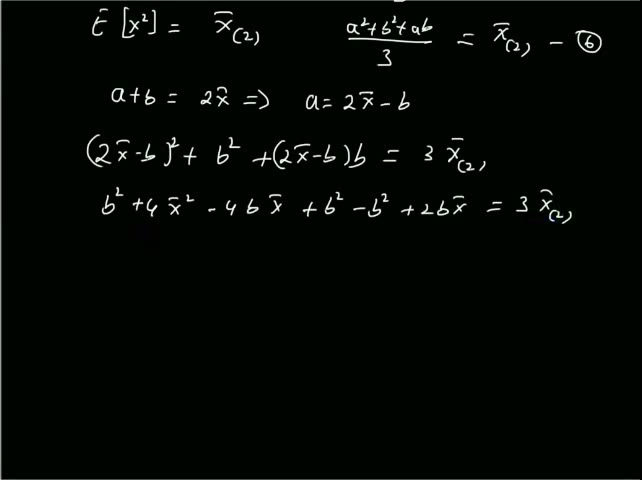 E [x²] = x̄₍₂₎    (a²+b²+ab)/3 = x̄₍₂₎ – ⑥
a+b = 2x̄ => a = 2x̄ – b
(2x̄–b)² + b² + (2x̄–b)b = 3 x̄₍₂₎
b² + 4x̄² – 4bx̄ + b² – b² + 2bx̄ = 3 x̄₍₂₎